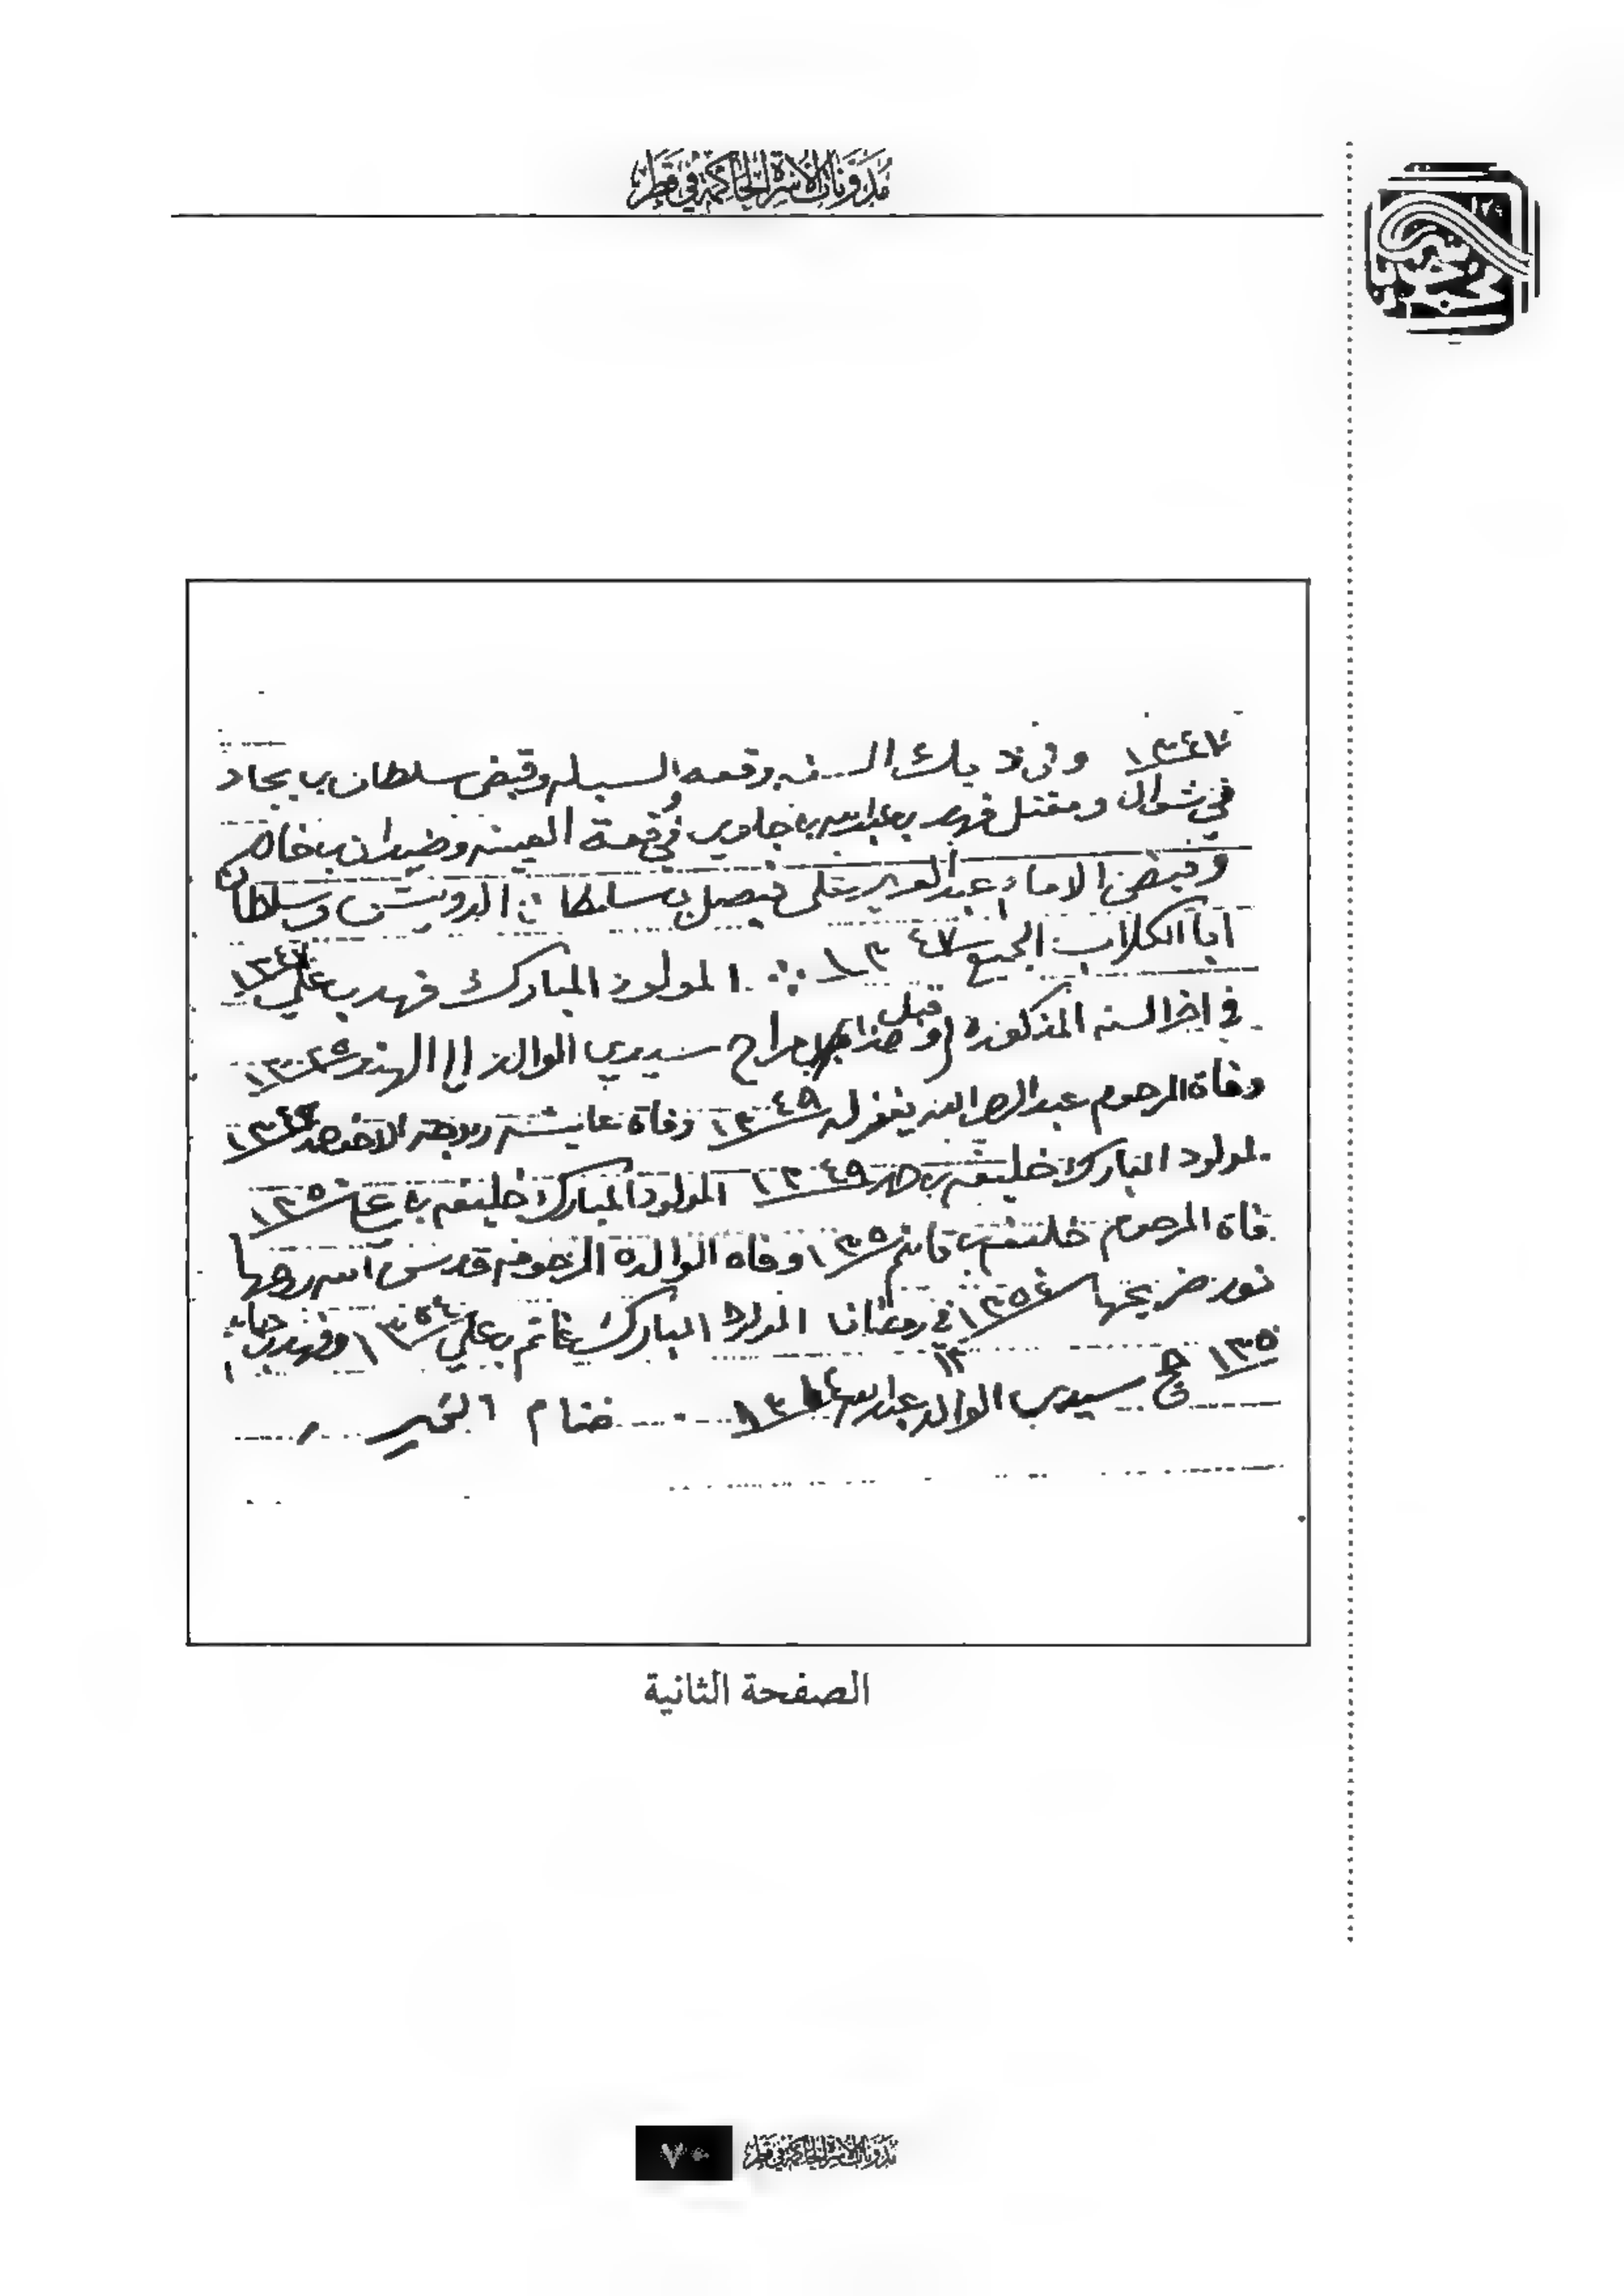 مدونات الأسرة الحاكمة في قطر
١٣٤٧ وفي ذيك السنه وقعه السبله وقبض سلطان بن بجاد
في شوال ومقتل فهد بن عبدالله بن جلوي في وقعة العينه وضيدان بن
وقبض الامام عبدالعزيز على فيصل بن سلطان الدويش وسلطان
ابا الكلاب الجميع ١٣٤٧ المولود المبارك فهد بن علي ١٣٤٧
في اخر السنه المذكوره وهذا قبل مراح سيدي الوالد الا الهند
وفاة المرحوم الله يغفر له ١٣٤٩ وفاة عايشه زوجة الاخ حمد
لمولود المبارك خليفه بن حمد ١٣٤٩ المولود المبارك خليفه بن علي ١٣٥
فاة المرحوم خليفه بن قاسم ١٣٥ وفاه الوالده المرحومه قدس الله روحها
نور ضريحها ١٣٥٤ في رمضان المولود المبارك غانم بن علي ١٣٥٤ وفهد بن
١٣٥ حج سيدي الوالد عبدالله ختام الخير
الصفحة الثانية
مدونات الأسرة الحاكمة في قطر ٧٠